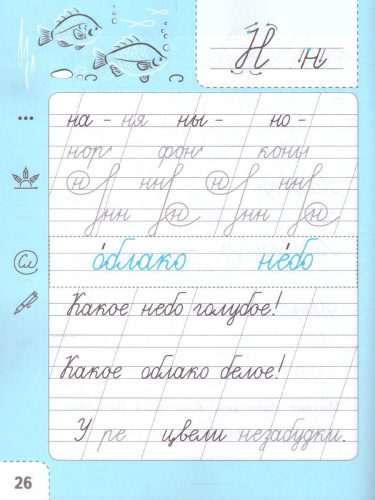 Н н
на - ня ны - но -
нор фон кони
н нн н нн
нн н нн н
о́блако не́бо
Какое небо голубое!
Какое облако белое!
У ре цвели незабудки.
26